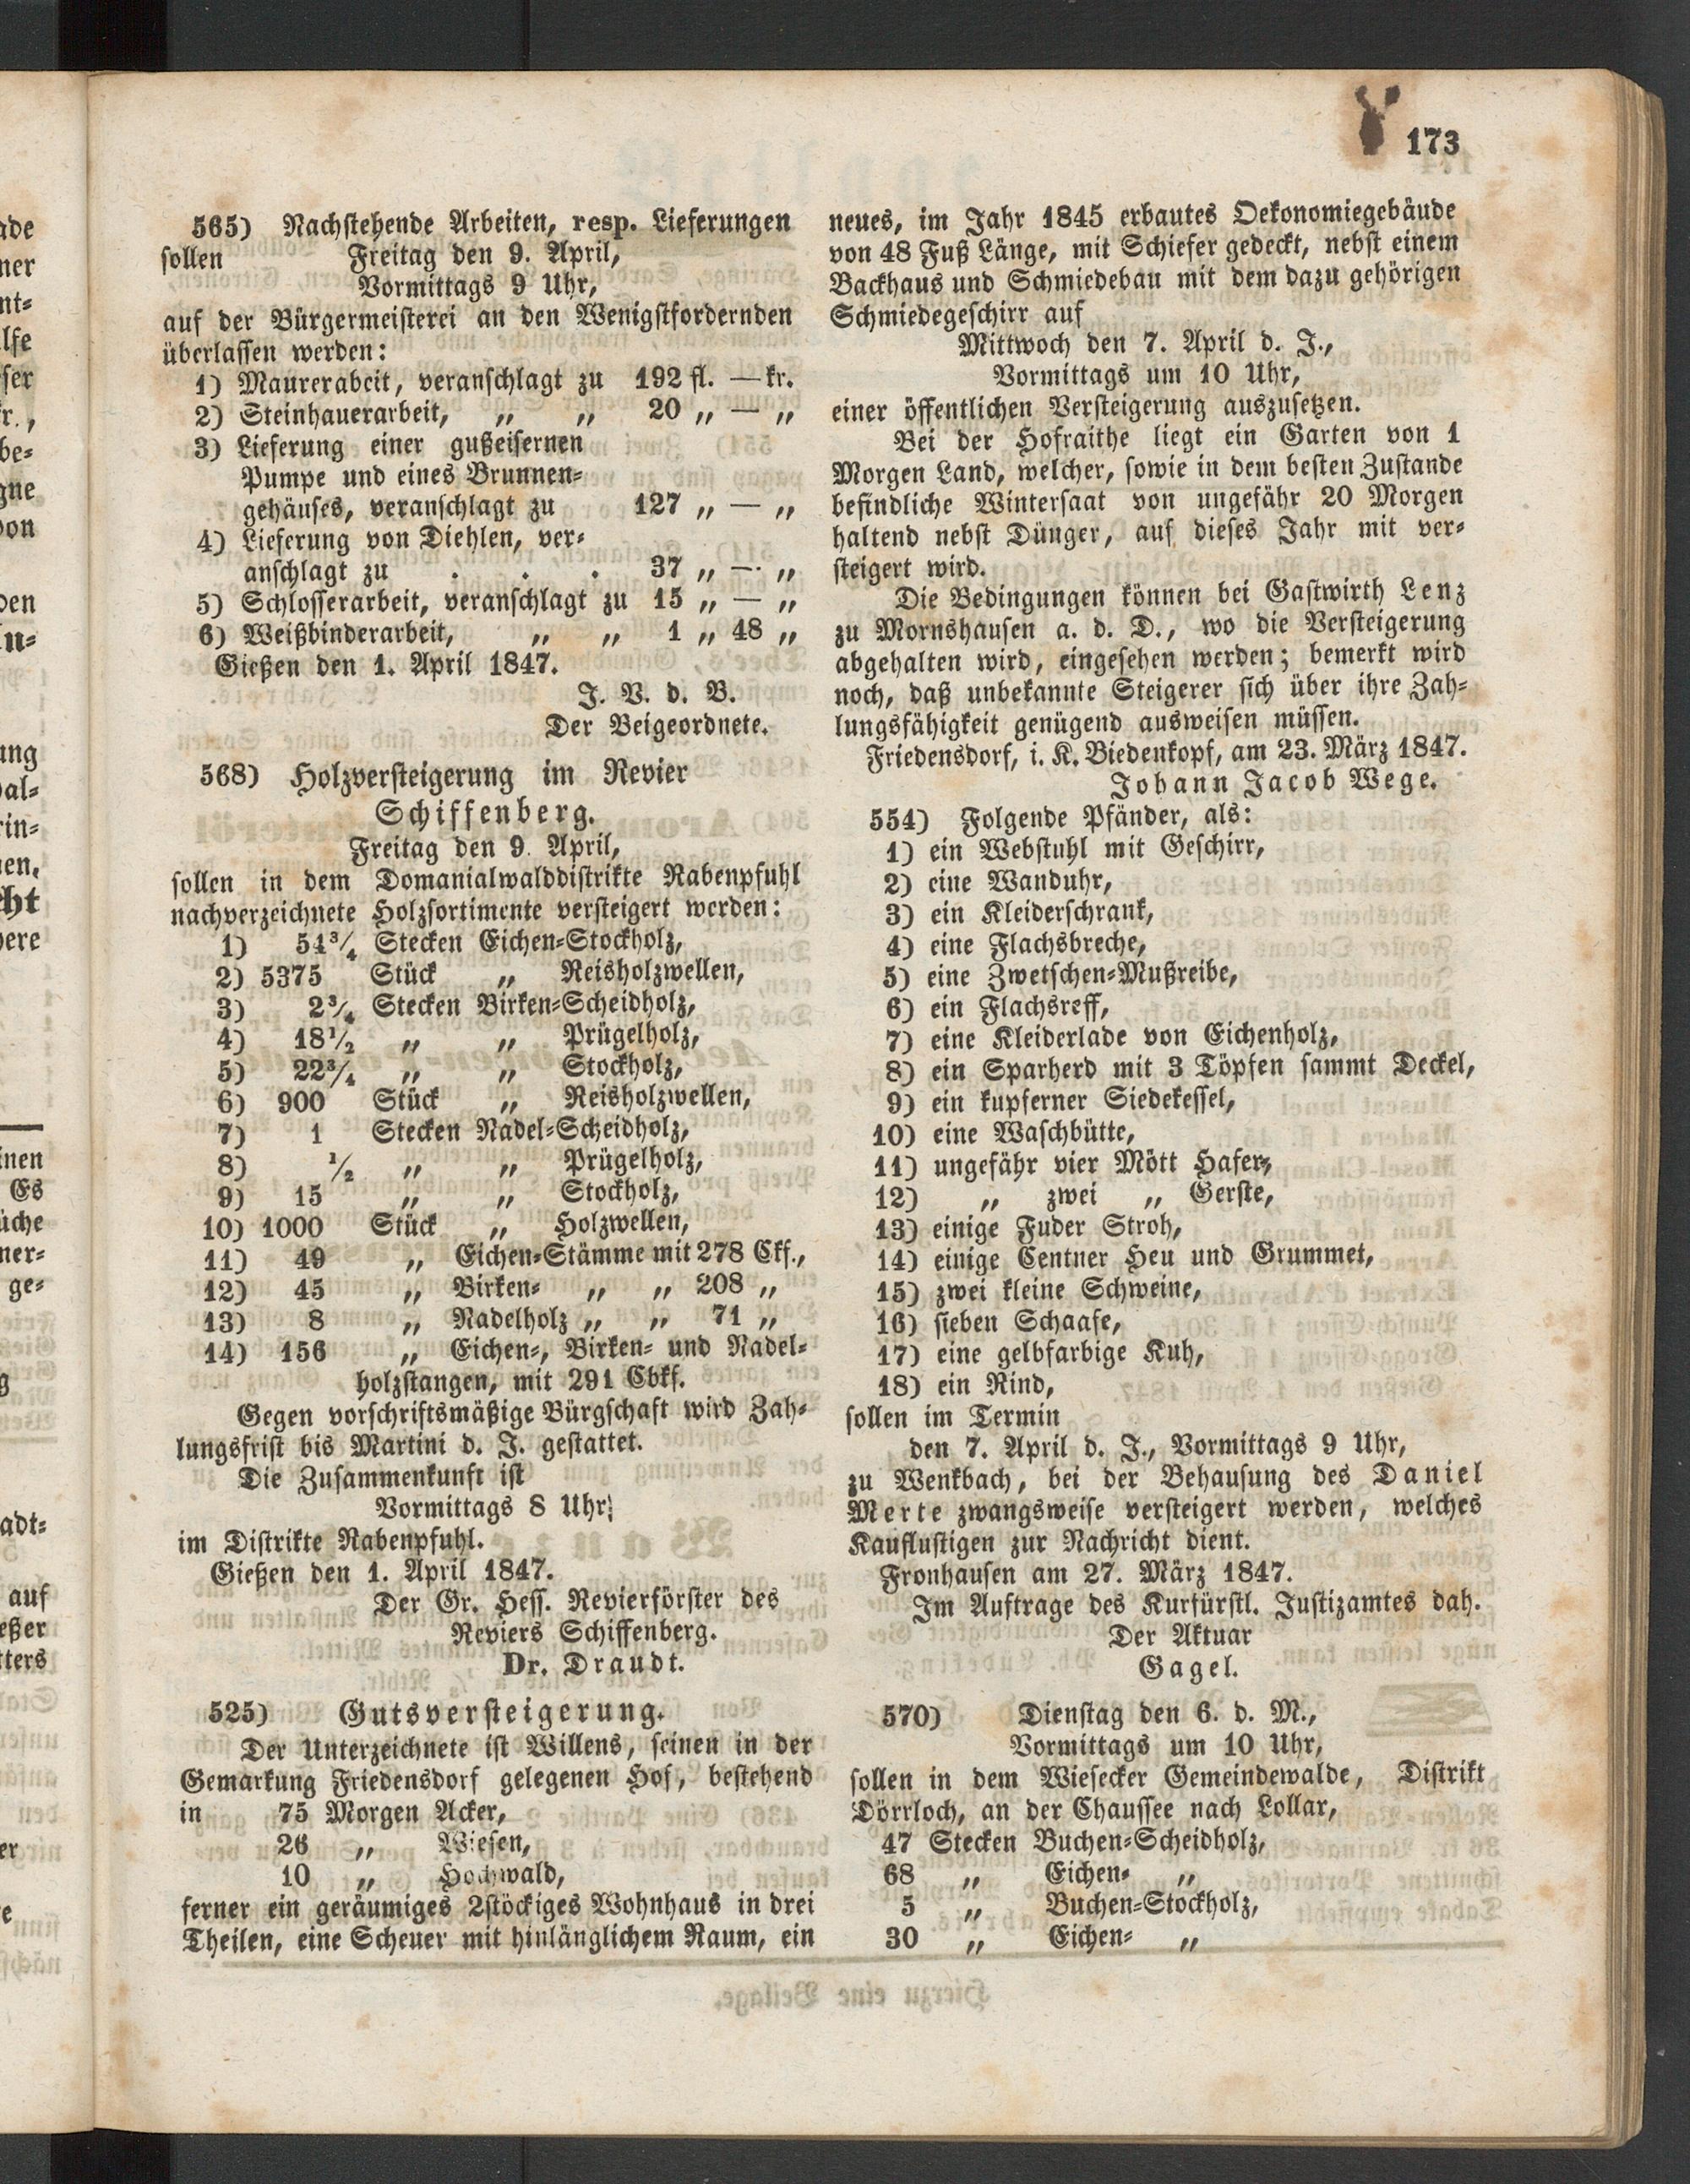 173
565) Nachstehende Arbeiten, resp. Lieferungen
sollen Freitag den 9. April,
Vormittags 9 Uhr,
auf der Bürgermeisterei an den Wenigstfordernden
überlassen werden:
1) Maurerabeit, veranschlagt zu 192 fl. — kr.
2) Steinhauerarbeit, „ „ 20 „ — „
3) Lieferung einer gußeisernen
Pumpe und eines Brunnen-
gehäuses, veranschlagt zu 127 „ — „
4) Lieferung von Diehlen, ver-
anschlagt zu . . . 37 „ — „
5) Schlosserarbeit, veranschlagt zu 15 „ — „
6) Weißbinderarbeit, „ „ 1 „ 48 „
Gießen den 1. April 1847.
J. V. d. B.
Der Beigeordnete.
568) Holzversteigerung im Revier
Schiffenberg.
Freitag den 9. April,
sollen in dem Domanialwalddistrikte Rabenpfuhl
nachverzeichnete Holzsortimente versteigert werden:
1) 54¾ Stecken Eichen-Stockholz,
2) 5375 Stück „ Reisholzwellen,
3) 2¾ Stecken Birken-Scheidholz,
4) 18½ „ „ Prügelholz,
5) 22¾ „ „ Stockholz,
6) 900 Stück „ Reisholzwellen,
7) 1 Stecken Nadel-Scheidholz,
8) ½ „ „ Prügelholz,
9) 15 „ „ Stockholz,
10) 1000 Stück „ Holzwellen,
11) 49 „ Eichen-Stämme mit 278 Ckf.,
12) 45 „ Birken- „ „ 208 „
13) 8 „ Nadelholz „ „ 71 „
14) 156 „ Eichen-, Birken- und Nadel-
holzstangen, mit 291 Cbkf.
Gegen vorschriftsmäßige Bürgschaft wird Zah-
lungsfrist bis Martini d. J. gestattet.
Die Zusammenkunft ist
Vormittags 8 Uhr,
im Distrikte Rabenpfuhl.
Gießen den 1. April 1847.
Der Gr. Hess. Revierförster des
Reviers Schiffenberg.
Dr. Draudt.
525) Gutsversteigerung.
Der Unterzeichnete ist Willens, seinen in der
Gemarkung Friedensdorf gelegenen Hof, bestehend
in 75 Morgen Acker,
26 „ Wiesen,
10 „ Hochwald,
ferner ein geräumiges 2stöckiges Wohnhaus in drei
Theilen, eine Scheuer mit hinlänglichem Raum, ein
neues, im Jahr 1845 erbautes Oekonomiegebäude
von 48 Fuß Länge, mit Schiefer gedeckt, nebst einem
Backhaus und Schmiedebau mit dem dazu gehörigen
Schmiedegeschirr auf
Mittwoch den 7. April d. J.,
Vormittags um 10 Uhr,
einer öffentlichen Versteigerung auszusetzen.
Bei der Hofraithe liegt ein Garten von 1
Morgen Land, welcher, sowie in dem besten Zustande
befindliche Wintersaat von ungefähr 20 Morgen
haltend nebst Dünger, auf dieses Jahr mit ver-
steigert wird.
Die Bedingungen können bei Gastwirth Lenz
zu Mornshausen a. d. D., wo die Versteigerung
abgehalten wird, eingesehen werden; bemerkt wird
noch, daß unbekannte Steigerer sich über ihre Zah-
lungsfähigkeit genügend ausweisen müssen.
Friedensdorf, i. K. Biedenkopf, am 23. März 1847.
Johann Jacob Wege.
554) Folgende Pfänder, als:
1) ein Webstuhl mit Geschirr,
2) eine Wanduhr,
3) ein Kleiderschrank,
4) eine Flachsbreche,
5) eine Zwetschen-Mußreibe,
6) ein Flachsreff,
7) eine Kleiderlade von Eichenholz,
8) ein Sparherd mit 3 Töpfen sammt Deckel,
9) ein kupferner Siedekessel,
10) eine Waschbütte,
11) ungefähr vier Mött Hafer,
12) „ zwei „ Gerste,
13) einige Fuder Stroh,
14) einige Centner Heu und Grummet,
15) zwei kleine Schweine,
16) sieben Schaafe,
17) eine gelbfarbige Kuh,
18) ein Rind,
sollen im Termin
den 7. April d. J., Vormittags 9 Uhr,
zu Wenkbach, bei der Behausung des Daniel
Merte zwangsweise versteigert werden, welches
Kauflustigen zur Nachricht dient.
Fronhausen am 27. März 1847.
Im Auftrage des Kurfürstl. Justizamtes dah.
Der Aktuar
Gagel.
570) Dienstag den 6. d. M.,
Vormittags um 10 Uhr,
sollen in dem Wiesecker Gemeindewalde, Distrikt
Dörrloch, an der Chaussee nach Lollar,
47 Stecken Buchen-Scheidholz,
68 „ Eichen- „
5 „ Buchen-Stockholz,
30 „ Eichen- „